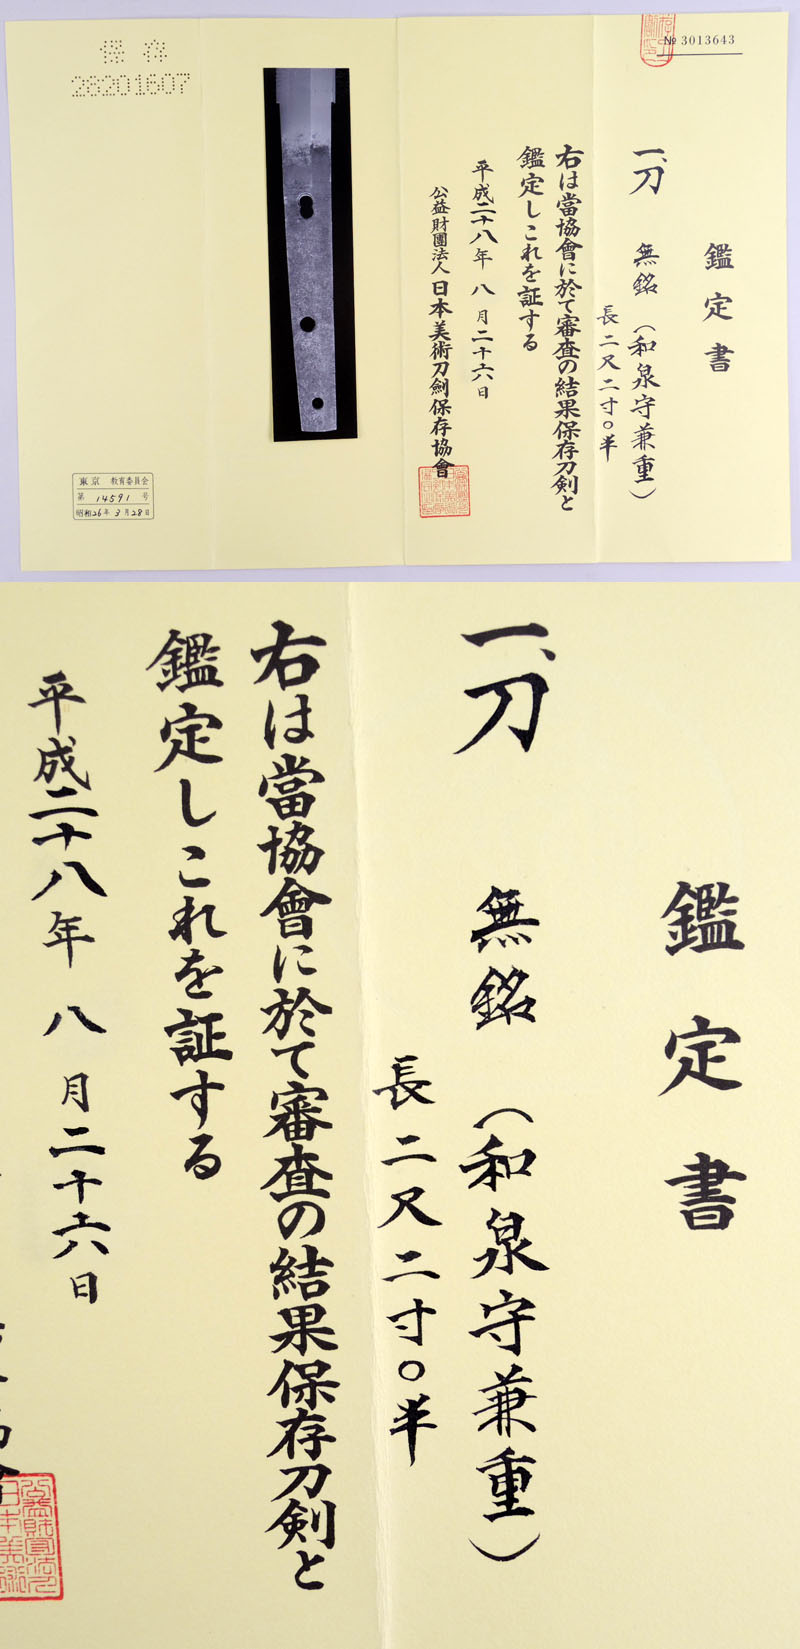 № 3013643
鑑定書
一、刀 無銘（和泉守兼重）
長二尺二寸〇半
右は當協會に於て審査の結果保存刀剣と
鑑定しこれを証する
平成二十八年 八月二十六日
公益財團法人日本美術刀劍保存協會
保存
28201607
東京 教育委員会
第 14591 号
昭和26年3月28日
鑑定書
一、刀 無銘（和泉守兼重）
長二尺二寸〇半
右は當協會に於て審査の結果保存刀剣と
鑑定しこれを証する
平成二十八年 八月二十六日